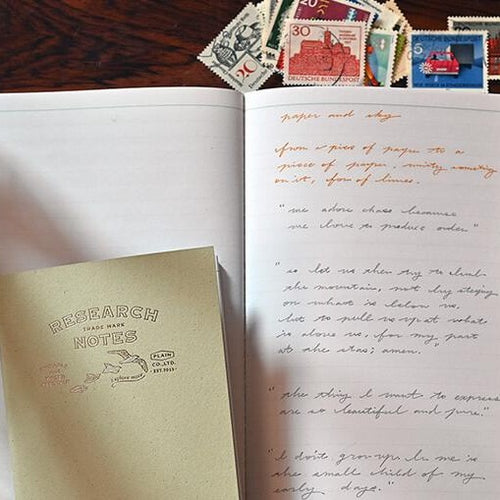 20
30
DEUTSCHE BUNDESPOST
5
DEUTSCHE BUNDESPOST
paper and sky
from a piece of paper to a
piece of paper, unity
on it, form of lines.
"we adore chaos because
we love to produce order"
"so let us then try to climb
the mountain, not by stepping
on what is below us,
but to pull us up at what
is above us, for my part
at the stars; amen."
"the thing I want to express
are so beautiful and pure."
"I don't grow up. In me is
the small child of my
early days."
RESEARCH
TRADE MARK
NOTES
PLAIN
CO., LTD.
EST. 2013
explore more